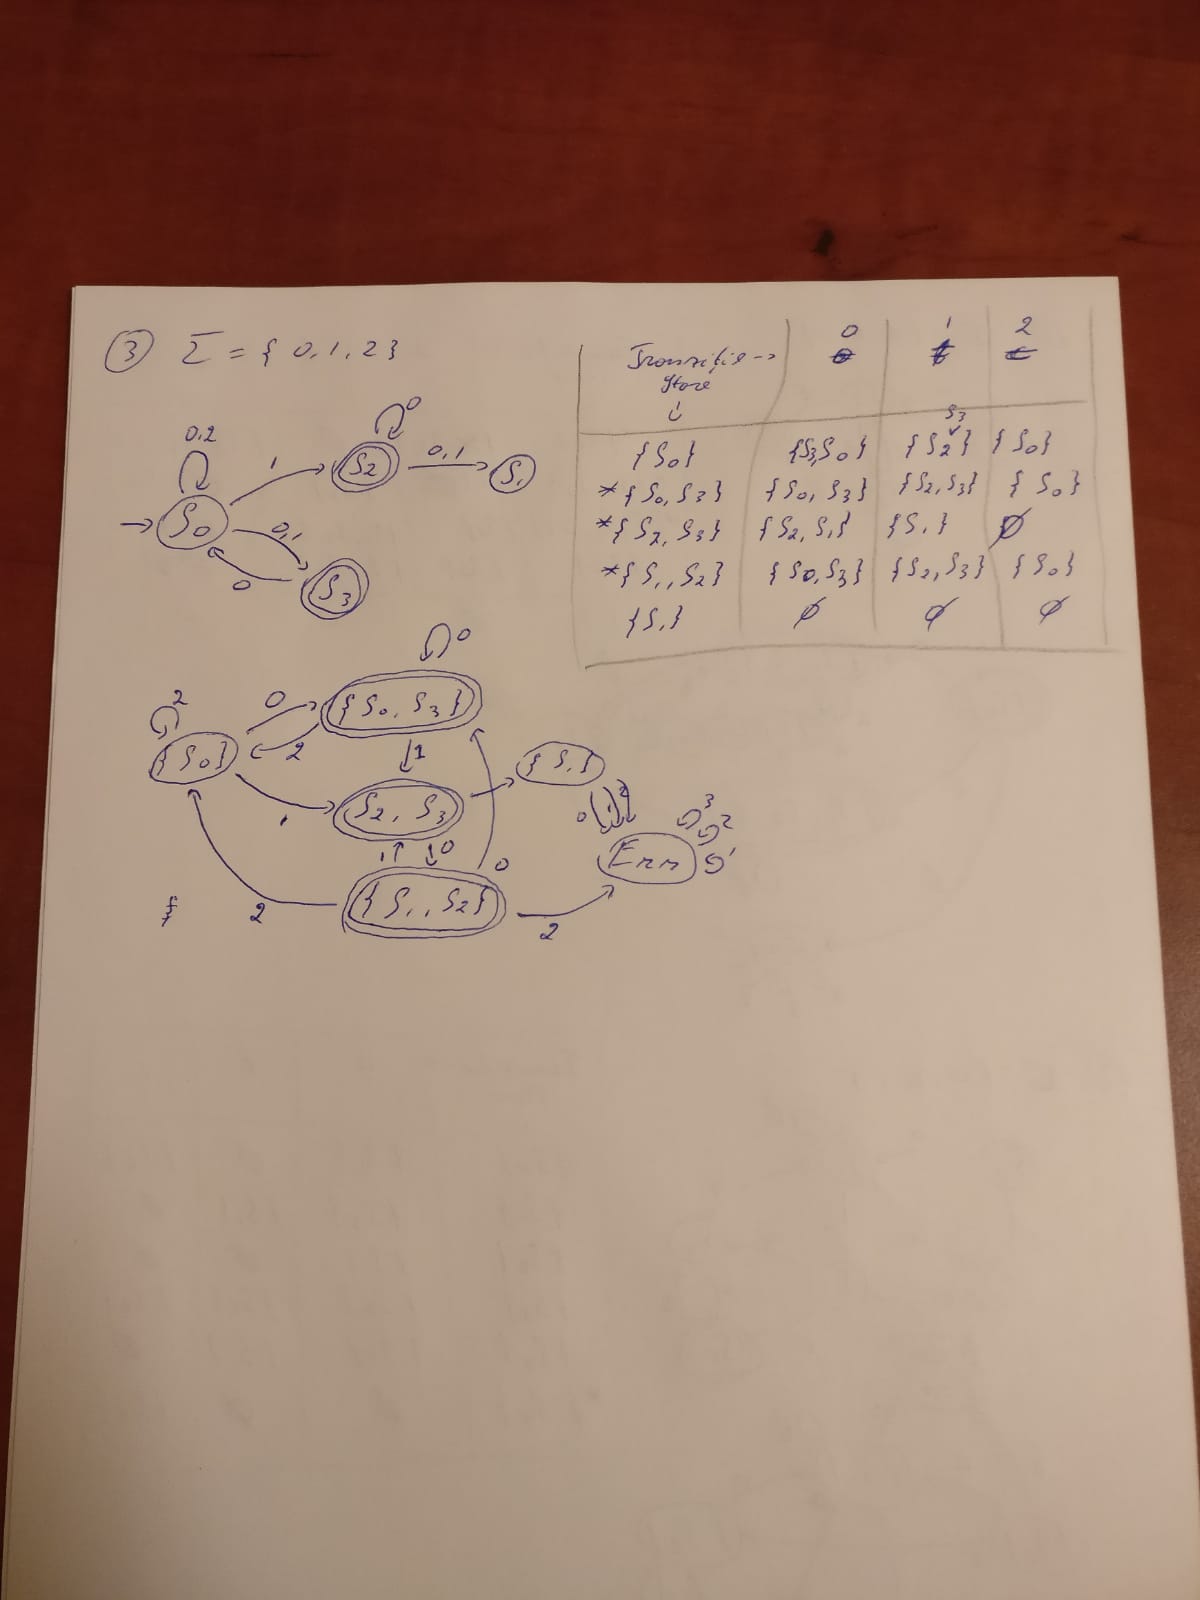 ③ Σ = { 0, 1, 2 }
0,2
1
0
0,1
S0
S2
S1
0,1
0
S3
Tranziție → 0 1 2
Stare
↓
{S0} {S3,S0} {S2, S3} {S0}
*{S0, S3} {S0, S3} {S2, S3} {S0}
*{S2, S3} {S2, S1} {S1} ∅
*{S1, S2} {S0, S3} {S2, S3} {S0}
{S1} ∅ ∅ ∅
0
2
0
{S0, S3}
{S0}
2
1
{S1}
1
S2, S3
0
1
2
3
2
1
Err
1
0
0
{S1, S2}
2
2